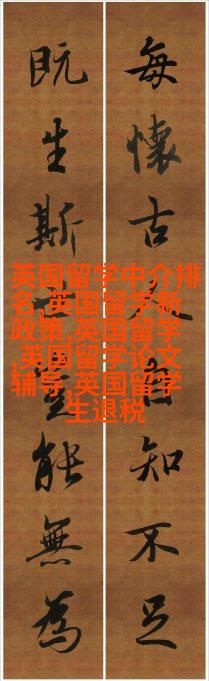 每懷古人自知不足
既生斯世豈能無為
英国留学中介排
名,英国留学新
政策,英国留学
,英国留学论文
辅导,英国留学
生退税